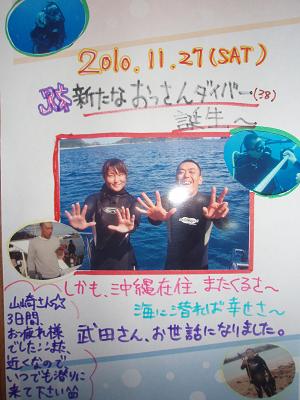 2010.11.27(SAT)
祝 新たなおっさんダイバー(38)
誕生〜
しかも、沖縄在住、またくるさ〜
海に潜れば幸せさ〜
武田さん、お世話になりました。
山崎さん☆
3日間、
お疲れ様
でした!!また、
近くなので
いつでも潜りに
来て下さい笛